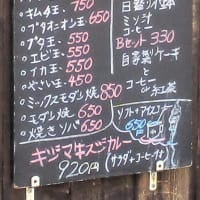 キムチ玉 750
ブタオニオン玉 650
ブタ玉 550
エビ玉 550
イカ玉 550
やさい玉 450
ミックスモダン焼 850
モダン焼 650
焼きソバ 650
ミソ汁
コーヒー
Bセット 330
自家製ケーキ
と
コーヒー
or 紅茶
ソフト+アイスコーヒー
650
キジマ牛スジカレー
920円(サラダ+コーヒー付)